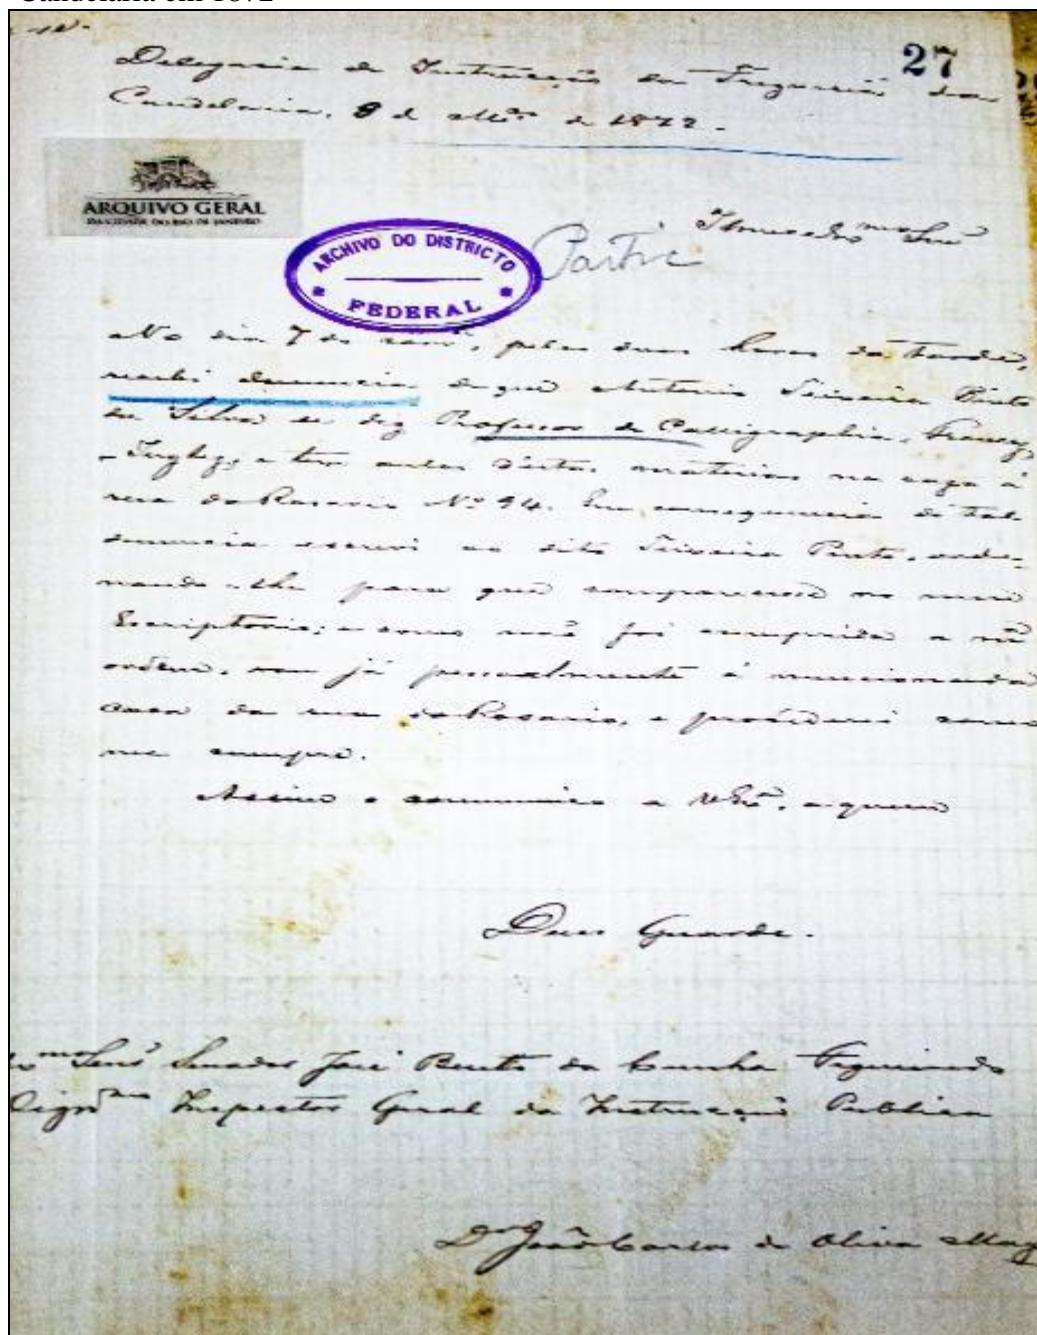 Candelaria em 1872
27
Delegacia de Instrucção da Freguesia da
Candelaria, 8 de de 1872.
ARQUIVO GERAL
DA CIDADE DO RIO DE JANEIRO
Senr
ARCHIVO DO DISTRICTO
FEDERAL
No dia 7 do corr, pelas duas horas da tarde,
recebi denuncia de que Antonio Teixeira Pinto
da Silva se diz Professor de Calligraphia, Francez,
Inglez, e tem aulas d'estas materias na caza á
rua do Rosario Nº 94. Em consequencia de tal
denuncia escrevi ao dito Teixeira Pinto, orde-
nando-lhe para que comparecesse no meu
Escriptorio; e como não foi cumprida a
ordem, vou já pessoalmente á mencionada
casa da rua do Rosario, e procederei como
me cumpre.
Assim o communico a VExª, a quem
Deus Guarde.
mo Senr Senador José Bento da Cunha Figueiredo
Digmo Inspector Geral da Instrucção Publica
Dr João Carlos de Oliva May